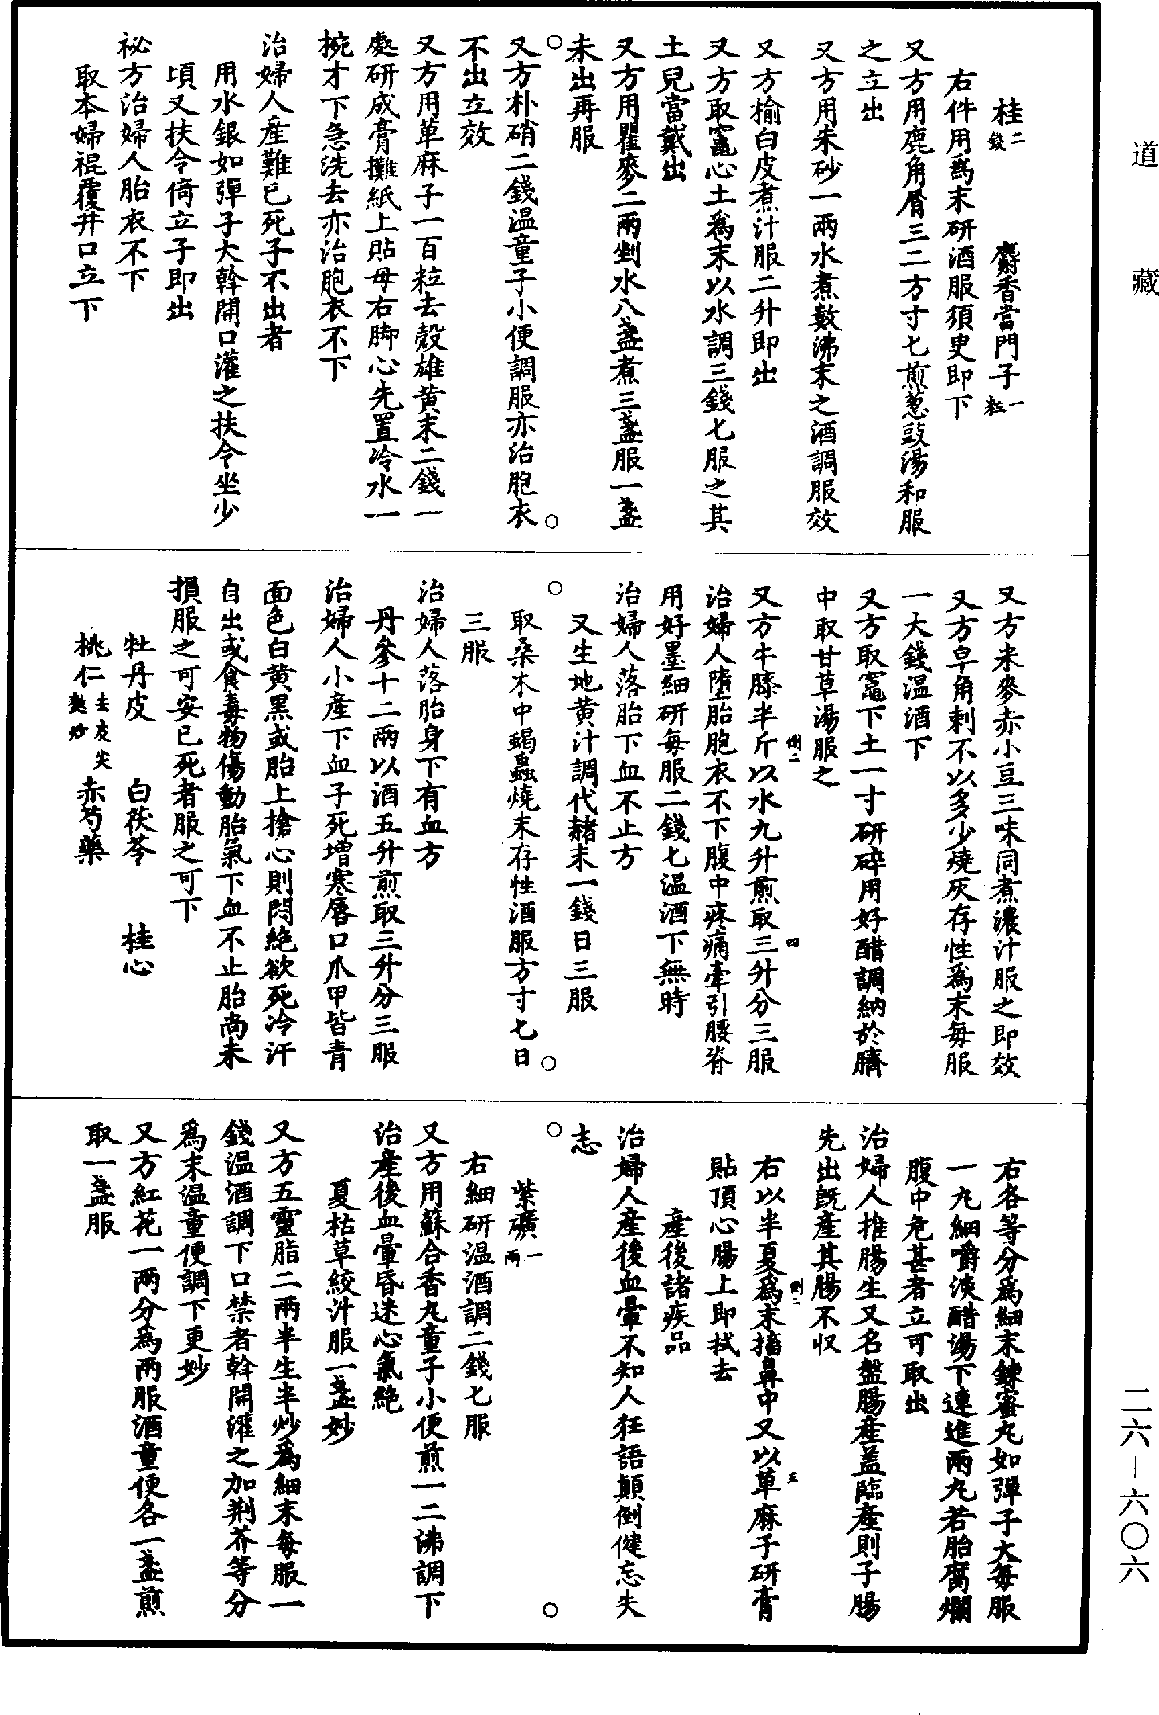 道藏
桂二錢　麝香當門子一粒
右件用爲末研酒服須臾即下
又方用鹿角屑三二方寸匕煎葱豉湯和服
之立出
又方用朱砂一兩水煮數沸末之酒調服效
又方榆白皮煮汁服二升即出
又方取竈心土爲末以水調三錢匕服之其
土兒當戴出
又方用瞿麥二兩剉水八盞煮三盞服一盞
未出再服
又方朴硝二錢温童子小便調服亦治胞衣
不出立效
又方用萆麻子一百粒去殼雄黄末二錢一
處研成膏攤紙上貼母右脚心先置冷水一
椀才下急洗去亦治胞衣不下
治婦人産難已死子不出者
用水銀如彈子大幹開口灌之扶令坐少
頃又扶令倚立子即出
祕方治婦人胎衣不下
取本婦裩覆井口立下
又方米麥赤小豆三味同煮濃汁服之即效
又方皁角刺不以多少燒灰存性爲末每服
一大錢温酒下
又方取竈下土一寸研碎用好醋調納於臍
中取甘草湯服之
又方牛膝半斤以水九升煎取三升分三服
治婦人墮胎胞衣不下腹中疼痛牽引腰脊
用好墨細研每服二錢匕温酒下無時
治婦人落胎下血不止方
又生地黄汁調代赭末一錢日三服
取桑木中蝎蟲燒末存性酒服方寸匕日
三服
治婦人落胎身下有血方
丹參十二兩以酒五升煎取三升分三服
治婦人小産下血子死增寒唇口爪甲皆青
面色白黄黑或胎上搶心則悶絶欲死冷汗
自出或食毒物傷動胎氣下血不止胎尚未
損服之可安已死者服之可下
牡丹皮　白茯苓　桂心
桃仁去皮尖麩炒　赤芍藥
右各等分爲細末鍊蜜丸如彈子大每服
一丸細嚼淡醋湯下連進兩丸若胎腐爛
腹中危甚者立可取出
治婦人推腸生又名盤腸産蓋臨産則子腸
先出旣産其腸不收
右以半夏爲末搐鼻中又以草麻子研膏
貼頂心腸上即拭去
産後諸疾品
治婦人産後血暈不知人狂語顛倒健忘失
志
紫礦一兩
右細研温酒調二錢匕服
又方用蘇合香丸童子小便煎一二沸調下
治産後血暈昏迷心氣絶
夏枯草絞汁服一盞妙
又方五靈脂二兩半生半炒爲細末每服一
錢温酒調下口禁者幹開灌之加荆芥等分
爲末温童便調下更妙
又方紅花一兩分爲兩服酒童便各一盞煎
取一盞服
二六－六〇六